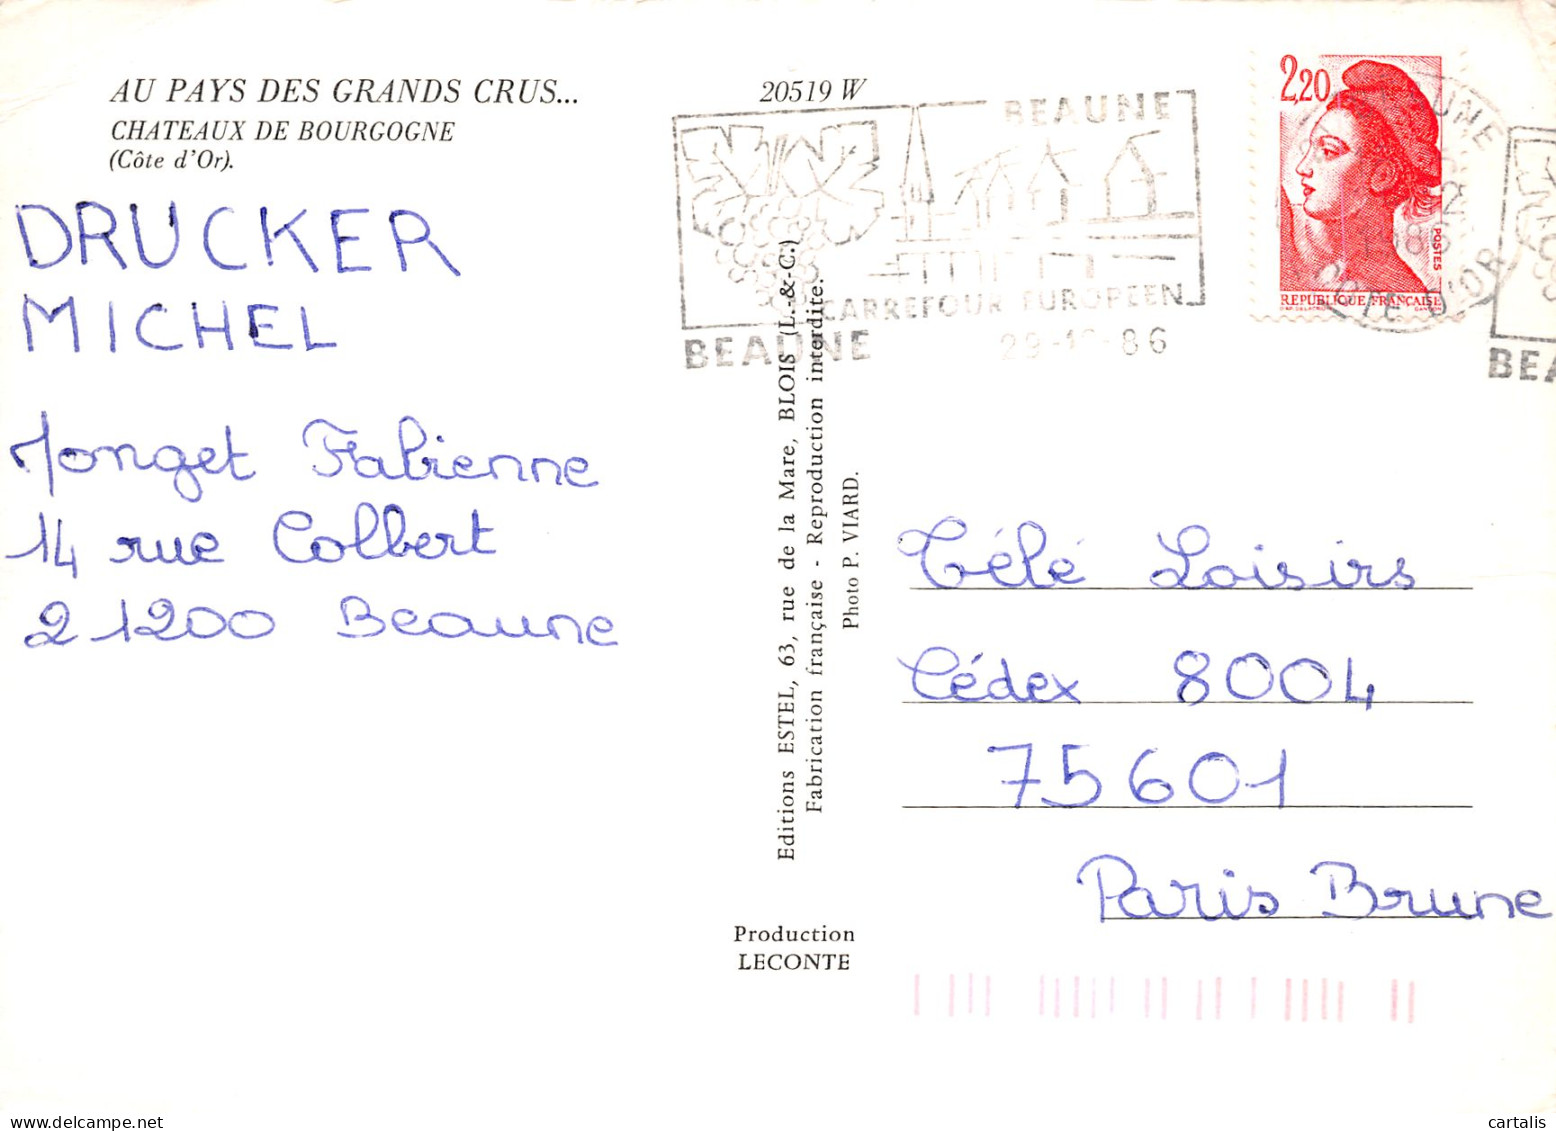 AU PAYS DES GRANDS CRUS...
CHATEAUX DE BOURGOGNE
(Côte d'Or).
20519 W
DRUCKER
MICHEL
Monget Fabienne
14 rue Colbert
21200 Beaune
BEAUNE
CARREFOUR EUROPEEN
BEAUNE
2,20
POSTES
REPUBLIQUE FRANÇAISE
COTE D'OR
BEA
Editions ESTEL, 63, rue de la Mare, BLOIS (L.-&-C.)
Fabrication française - Reproduction interdite.
Photo P. VIARD.
Télé Loisirs
Cédex 8004
75601
Paris Brune
Production
LECONTE
cartalis